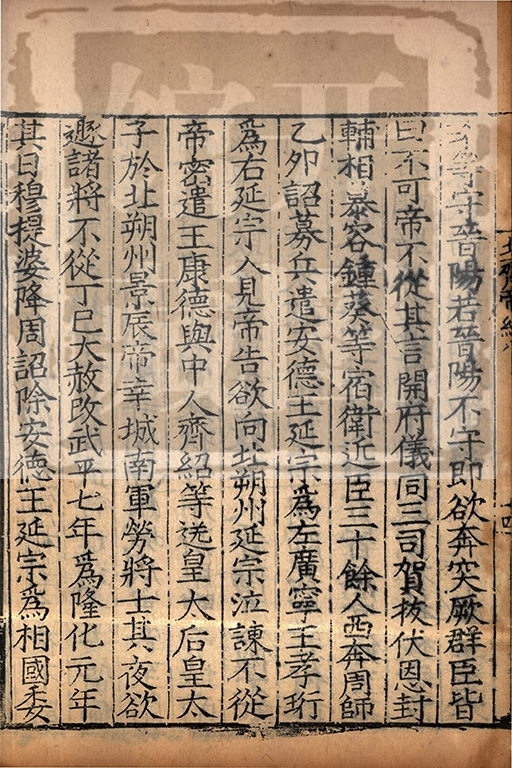 孝等守晉陽若晉陽不守即欲奔突厥群臣皆
曰不可帝不從其言開府儀同三司賀拔伏恩封
輔相慕容鍾葵等宿衛近臣三十餘人西奔周師
乙卯詔募兵遣安德王延宗為左廣寧王孝珩
為右延宗入見帝告欲向北朔州延宗泣諫不從
帝密遣王康德與中人齊紹等送皇太后皇太
子於北朔州景辰帝幸城南軍勞將士其夜欲
遯諸將不從丁巳大赦改武平七年為隆化元年
其日穆提婆降周詔除安德王延宗為相國委